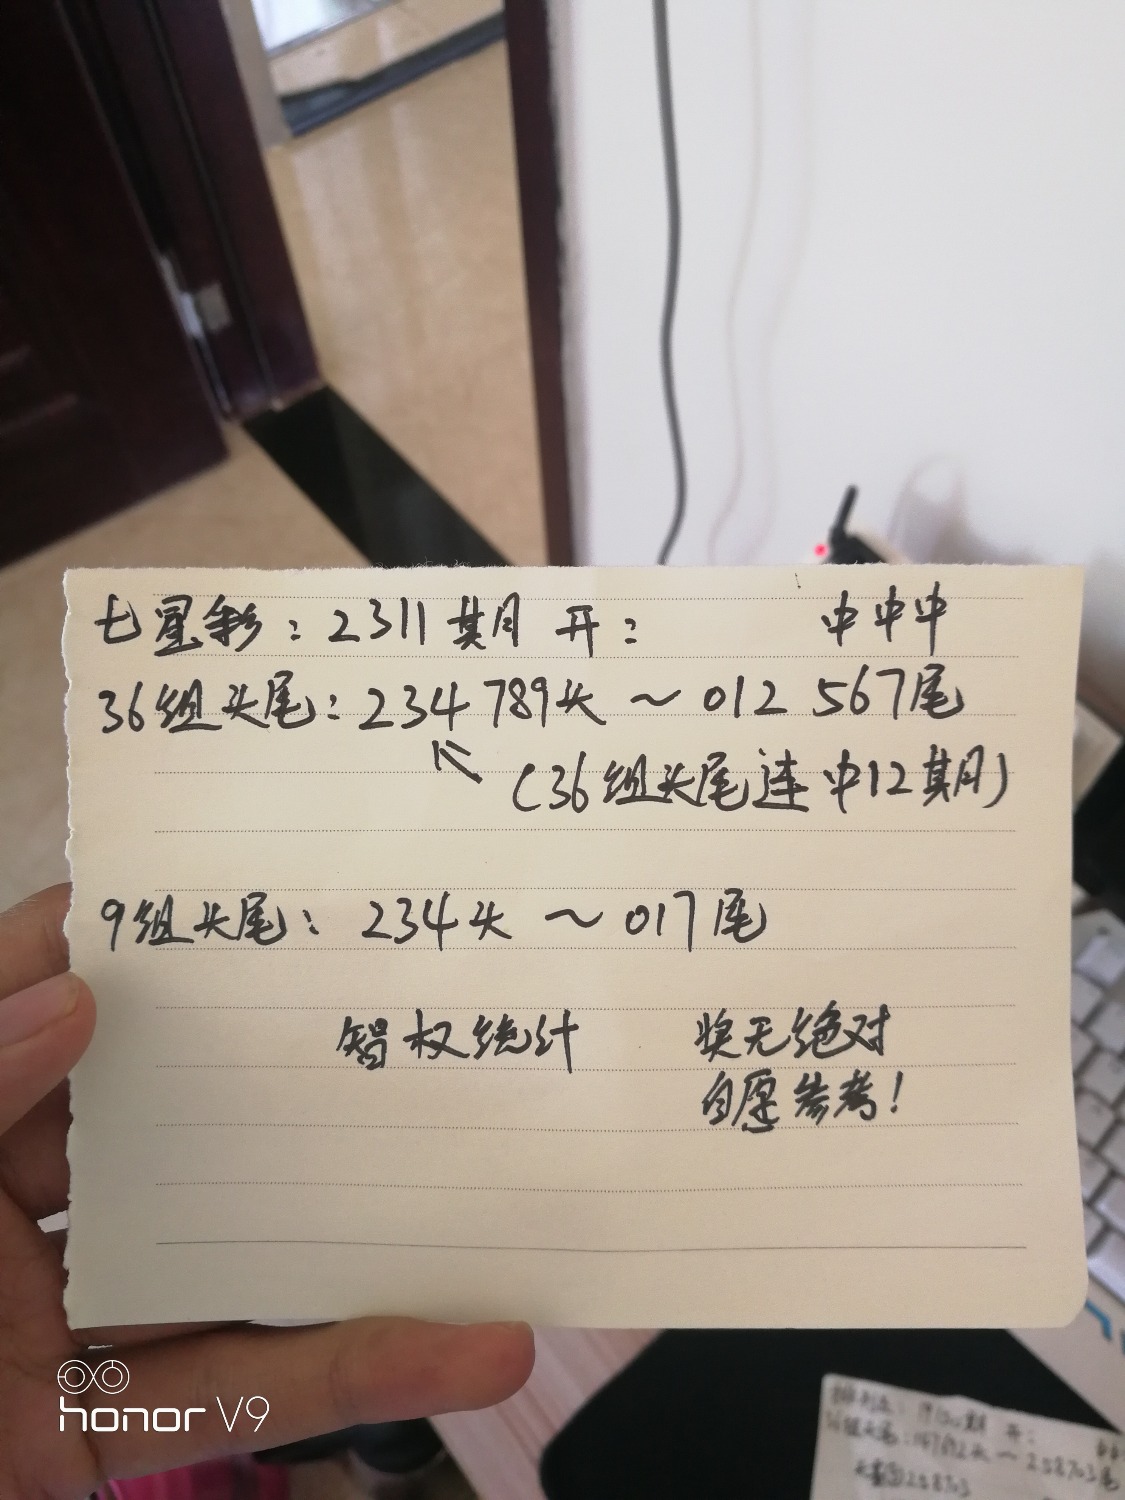 七星彩：2311期 开： 中中中
36组头尾：234 789头 ～ 012 567尾
（36组头尾连中12期）
9组头尾： 234头 ～ 017尾
智权统计 奖无绝对
自愿参考！
honor V9